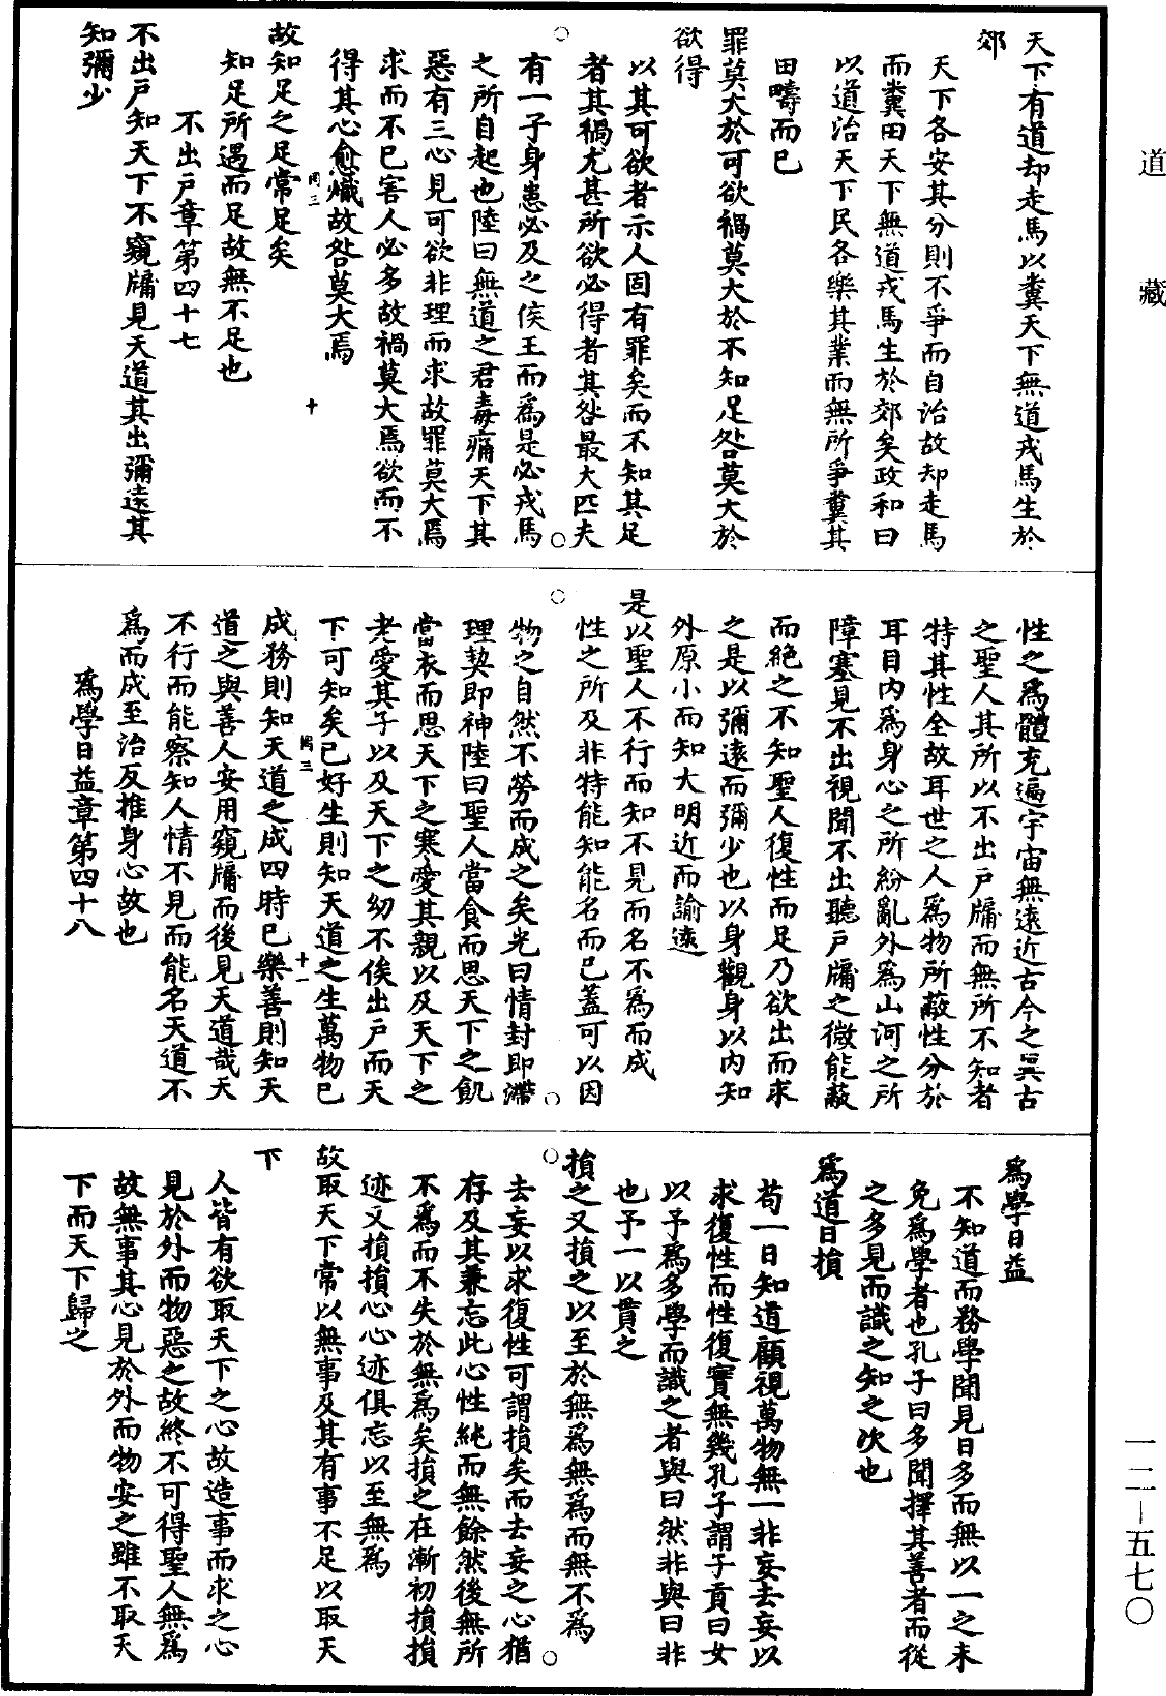 道藏
天下有道却走馬以糞天下無道戎馬生於
郊
天下各安其分則不爭而自治故却走馬
而糞田天下無道戎馬生於郊矣政和曰
以道治天下民各樂其業而無所爭糞其
田疇而已
罪莫大於可欲禍莫大於不知足咎莫大於
欲得
以其可欲者示人固有罪矣而不知其足
者其禍尤甚所欲必得者其咎最大匹夫
有一子身患必及之侯王而爲是必戎馬
之所自起也陸曰無道之君毒痡天下其
惡有三心見可欲非理而求故罪莫大焉
求而不已害人必多故禍莫大焉欲而不
得其心愈熾故咎莫大焉
罔三 十
故知足之足常足矣
知足所遇而足故無不足也
不出戶章第四十七
不出戶知天下不窺牖見天道其出彌遠其
知彌少
性之爲體充遍宇宙無遠近古今之異古
之聖人其所以不出戶牖而無所不知者
特其性全故耳世之人爲物所蔽性分於
耳目內爲身心之所紛亂外爲山河之所
障塞見不出視聞不出聽戶牖之微能蔽
而絕之不知聖人復性而足乃欲出而求
之是以彌遠而彌少也以身觀身以內知
外原小而知大明近而諭遠
是以聖人不行而知不見而名不爲而成
性之所及非特能知能名而已蓋可以因
物之自然不勞而成之矣光曰情封即滯
理契即神陸曰聖人當食而思天下之飢
當衣而思天下之寒愛其親以及天下之
老愛其子以及天下之幼不俟出戶而天
下可知矣已好生則知天道之生萬物已
罔三 十一
成務則知天道之成四時已樂善則知天
道之與善人安用窺牖而後見天道哉天
不行而能察知人情不見而能名天道不
爲而成至治反推身心故也
爲學日益章第四十八
爲學日益
不知道而務學聞見日多而無以一之未
免爲學者也孔子曰多聞擇其善者而從
之多見而識之知之次也
爲道日損
苟一日知道顧視萬物無一非妄去妄以
求復性而性復實無幾孔子謂子貢曰女
以予爲多學而識之者與曰然非與曰非
也予一以貫之
損之又損之以至於無爲無爲而無不爲
去妄以求復性可謂損矣而去妄之心猶
存及其兼忘此心性純而無餘然後無所
不爲而不失於無爲矣損之在漸初損損
迹又損損心心迹俱忘以至無爲
故取天下常以無事及其有事不足以取天
下
人皆有欲取天下之心故造事而求之心
見於外而物惡之故終不可得聖人無爲
故無事其心見於外而物安之雖不取天
下而天下歸之
一二—五七〇